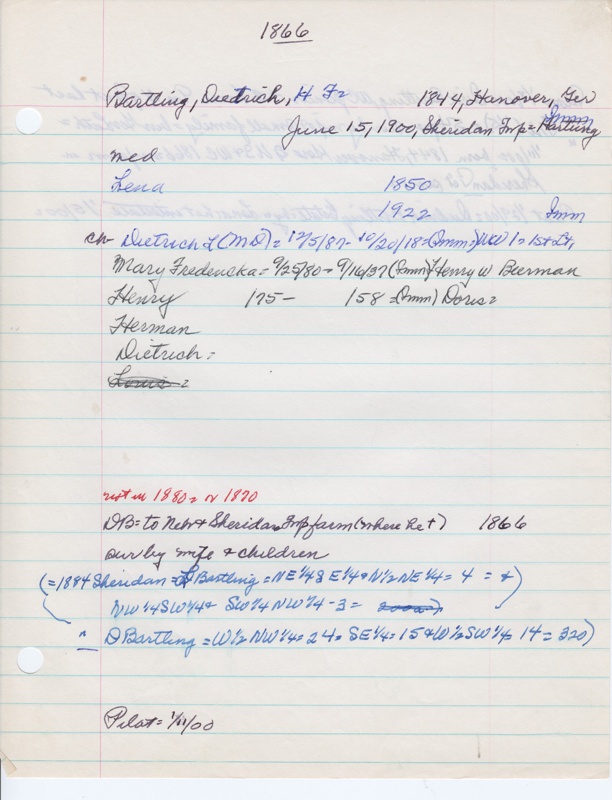 1866
Bartling, Diedrich, H Fz 1844, Hanover, Ger
June 15, 1900, Sheridan Twp = Hartung Imm
med
Lena 1850
1922 Imm
ch- Dietrich L (MD) = 12/5/87- 10/20/18 = (Imm =) WW 1 = 1st Lt,
Mary Fredericka = 9/25/80 - 9/16/37 (Imm) Henry W Bierman
Henry 175 - 158 = (Imm) Doris =
Herman
Dietrich =
Louis =
not in 1880 = or 1870
DB = to Neb & Sheridan Twp farm (where he +) 1866
sur by wife & children
(= 1884 Sheridan = Bartling = NE 1/4 SE 1/4 & N 1/2 NE 1/4 = 4 = &
NW 1/4 SW 1/4 & SW 1/4 NW 1/4 - 3 =
" D Bartling = W 1/2 NW 1/4 = 24 = SE 1/4 = 15 & W 1/2 SW 1/4 = 14 = 320)
Pilot = 1/11/00